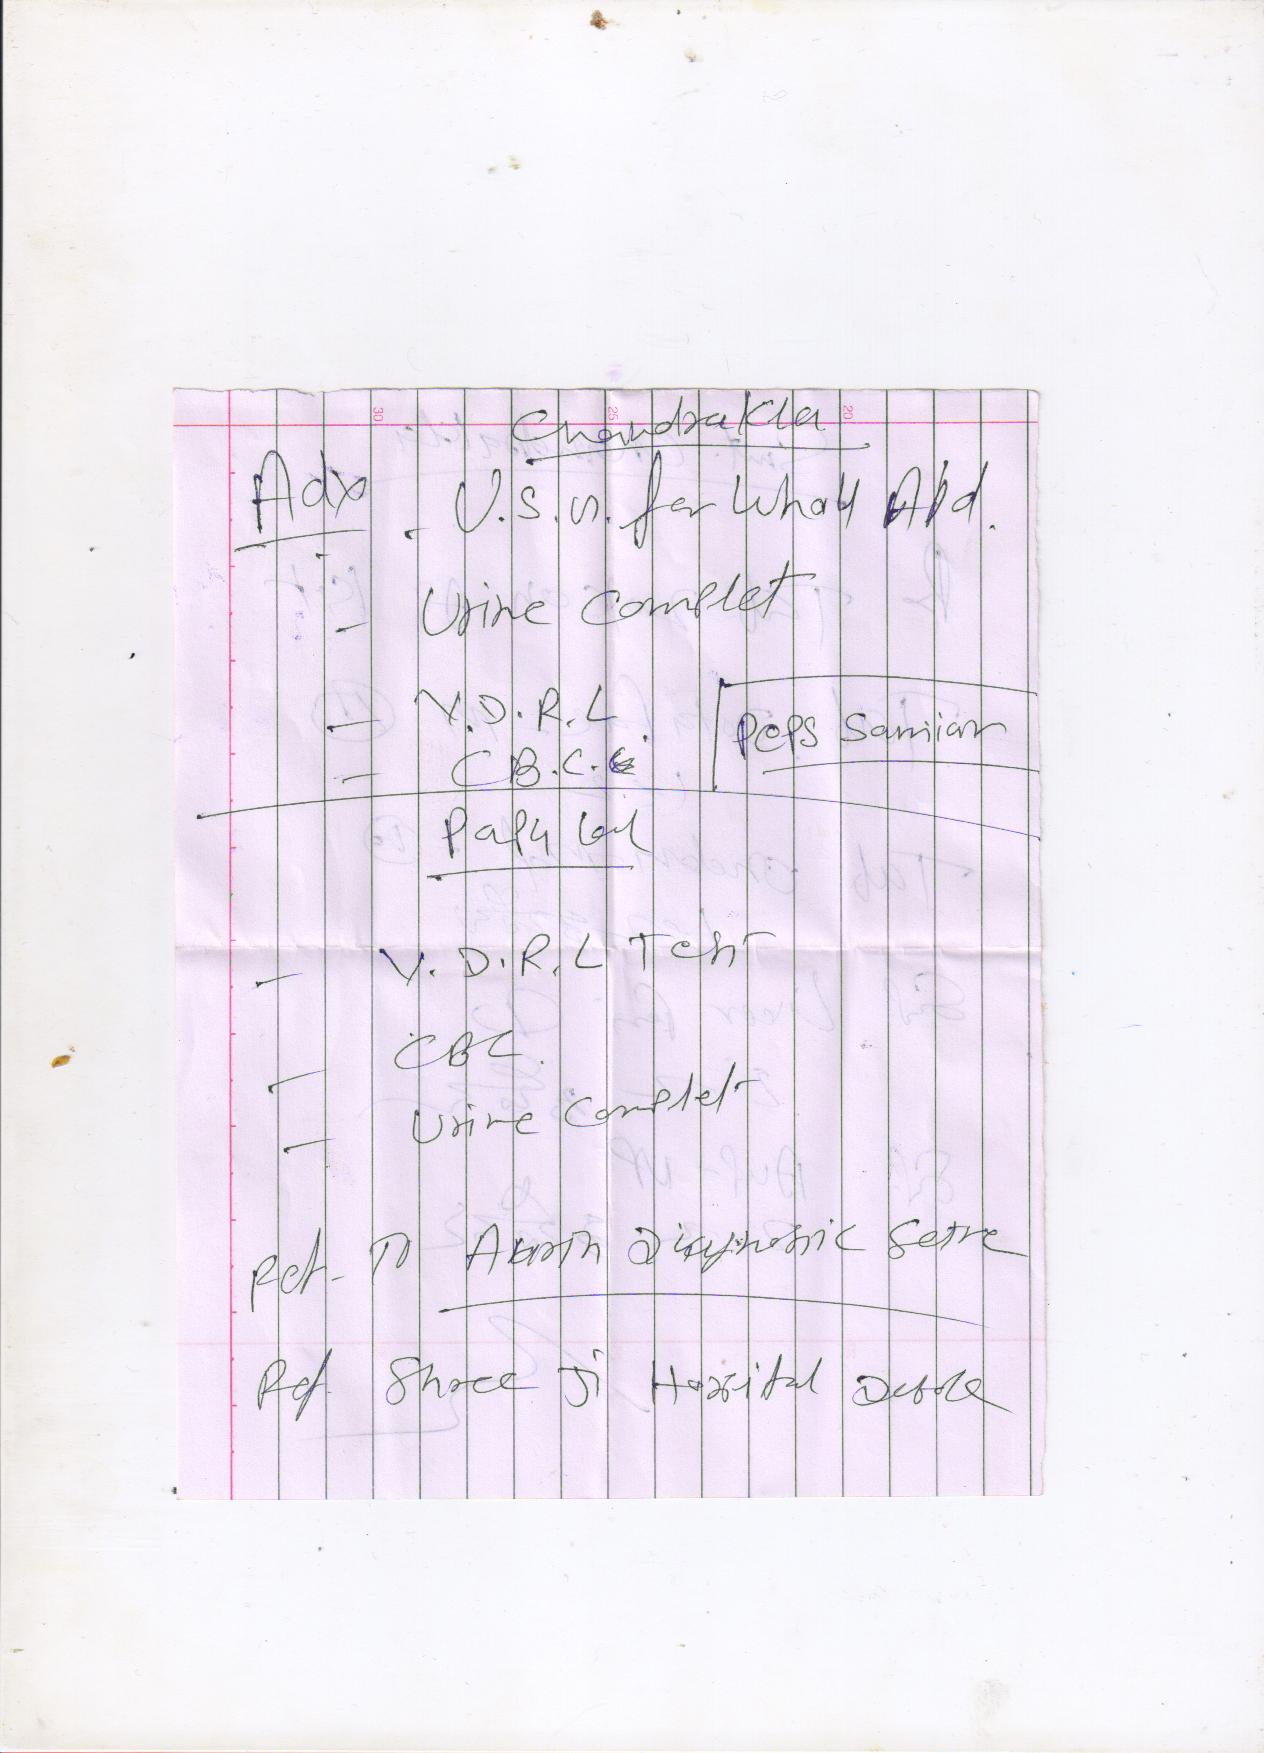 Chandrakla
Adv - U.S.G. for Whole Abd.
- Urine Complet
- V.D.R.L.
- C.B.C.
Peps Samiar
Papu Lal
- V.D.R.L Test
- CBC.
- Urine Complet
Ref. To Diagnosic Setre
Ref. Shree Ji Hospital
30
25
20